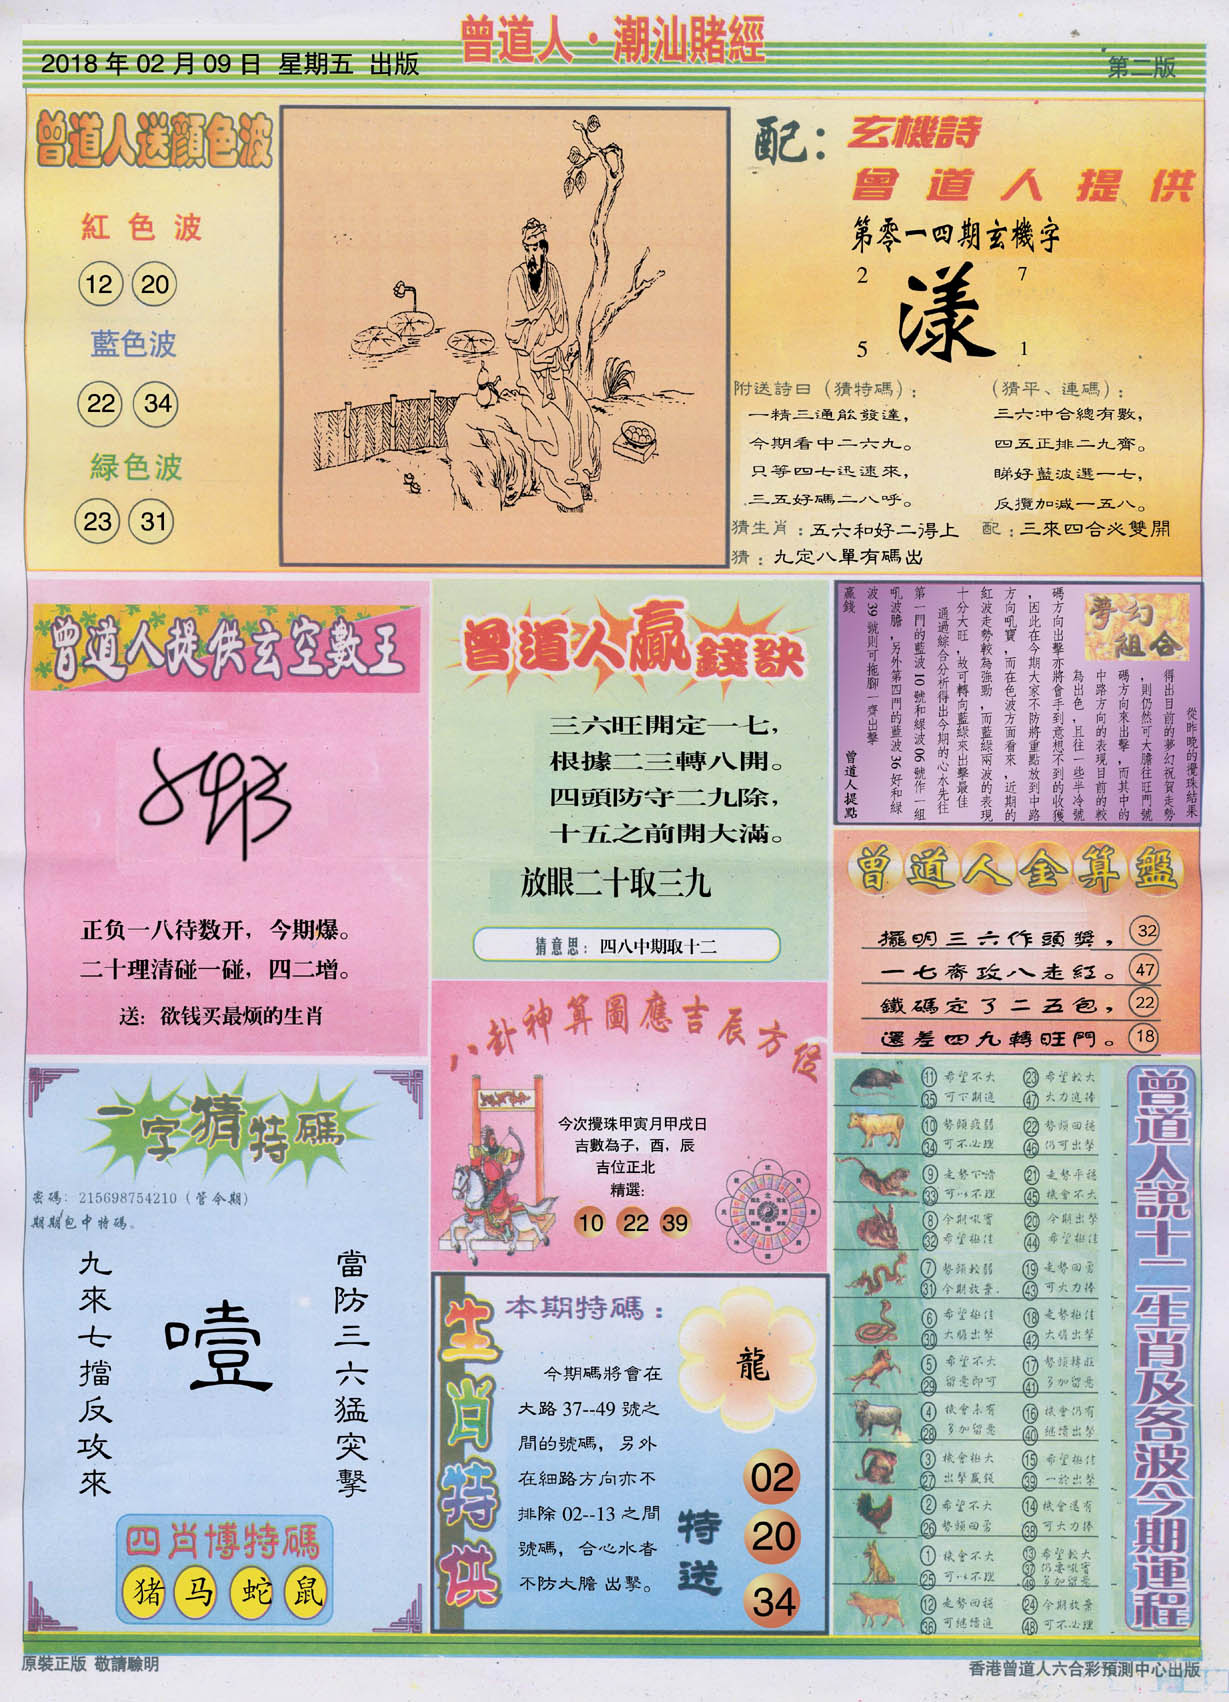 曾道人·潮汕賭經
2018 年 02 月 09 日 星期五 出版
第二版
曾道人送顏色波
紅色波
12 20
藍色波
22 34
緑色波
23 31
配：
玄機詩
曾道人提供
第零一四期玄機字
2 7
漾
5 1
附送詩曰（猜特碼）：
一精三通能發達，
今期看中二六九。
只等四七迅速來，
三五好碼二八呼。
（猜平、連碼）：
三六冲合總有數，
四五正排二九齊。
睇好藍波選一七，
反攬加減一五八。
猜生肖：五六和好二得上
配：三來四合必雙開
猜：九定八單有碼出
曾道人提供玄空數王
正负一八待数开，今期爆。
二十理清碰一碰，四二增。
送：欲钱买最烦的生肖
曾道人贏錢訣
三六旺開定一七，
根據二三轉八開。
四頭防守二九除，
十五之前開大滿。
放眼二十取三九
猜意思：四八中期取十二
夢幻組合
從昨晚的攪珠結果
得出目前的夢幻祝賀走勢
，則仍然可大膽往旺門號
碼方向來出擊，而其中的
中路方向的表現目前的較
為出色，且往一些半冷號
碼方向出擊亦將會手到意想不到的收獲
，因此在今期大家不防將重點放到中路
方向吼寶，而在色波方面看來，近期的
紅波走勢較為強勁，而藍綠兩波的表現
十分大旺，故可轉向藍綠來出擊最佳
通過綜合分析得出今期的心水先往
第一門的藍波 10 號和綠波 06 號作一組
吼波膽，另外第四門的藍波 36 好和綠
波 39 號則可拖腳一齊出擊
贏錢
曾道人提點
曾道人金算盤
擺明三六作頭獎， 32
一七齊攻八走紅。 47
鐵碼定了二五包， 22
還差四九轉旺門。 18
八卦神算圖應吉辰方位
今次攪珠甲寅月甲戌日
吉數為子，酉，辰
吉位正北
精選：
10 22 39
一字猜特碼
密碼：215698754210（管今期）
期期包中特碼。
當防三六猛突擊
噎
九來七擋反攻來
四肖博特碼
猪 马 蛇 鼠
生肖特供
本期特碼：
龍
今期碼將會在
大路 37--49 號之
間的號碼，另外
在細路方向亦不
排除 02--13 之間
號碼，合心水者
不防大膽 出擊。
特送
02
20
34
曾道人說十二生肖及各波今期運程
11 希望不大 23 希望較大
35 可下期追 47 大力追捧
10 勢頭疲弱 22 勢頭回穩
34 可不必理 46 仍可出擊
9 走勢下滑 21 走勢平穩
33 可以不理 45 機會不大
8 今期吼寶 20 今期出擊
32 希望極佳 44 希望極佳
7 勢頭較弱 19 走勢回勇
31 今期放棄 43 可大力捧
6 希望極佳 18 走勢極佳
30 大膽出擊 42 大膽出擊
5 希望不大 17 勢頭轉旺
29 留意即可 41 多加留意
4 機會未有 16 機會仍有
28 多加留意 40 繼續出擊
3 機會極大 15 希望極佳
27 出擊贏錢 39 一於出擊
2 希望不大 14 機會還有
26 勢頭回勇 38 可大力捧
1 機會不大 13 希望較大
25 可以不理 37 仍要吼寶
49 多加留意
12 走勢回穩 24 今期放棄
36 可繼續追 48 可不必理
原裝正版 敬請驗明
香港曾道人六合彩預測中心出版